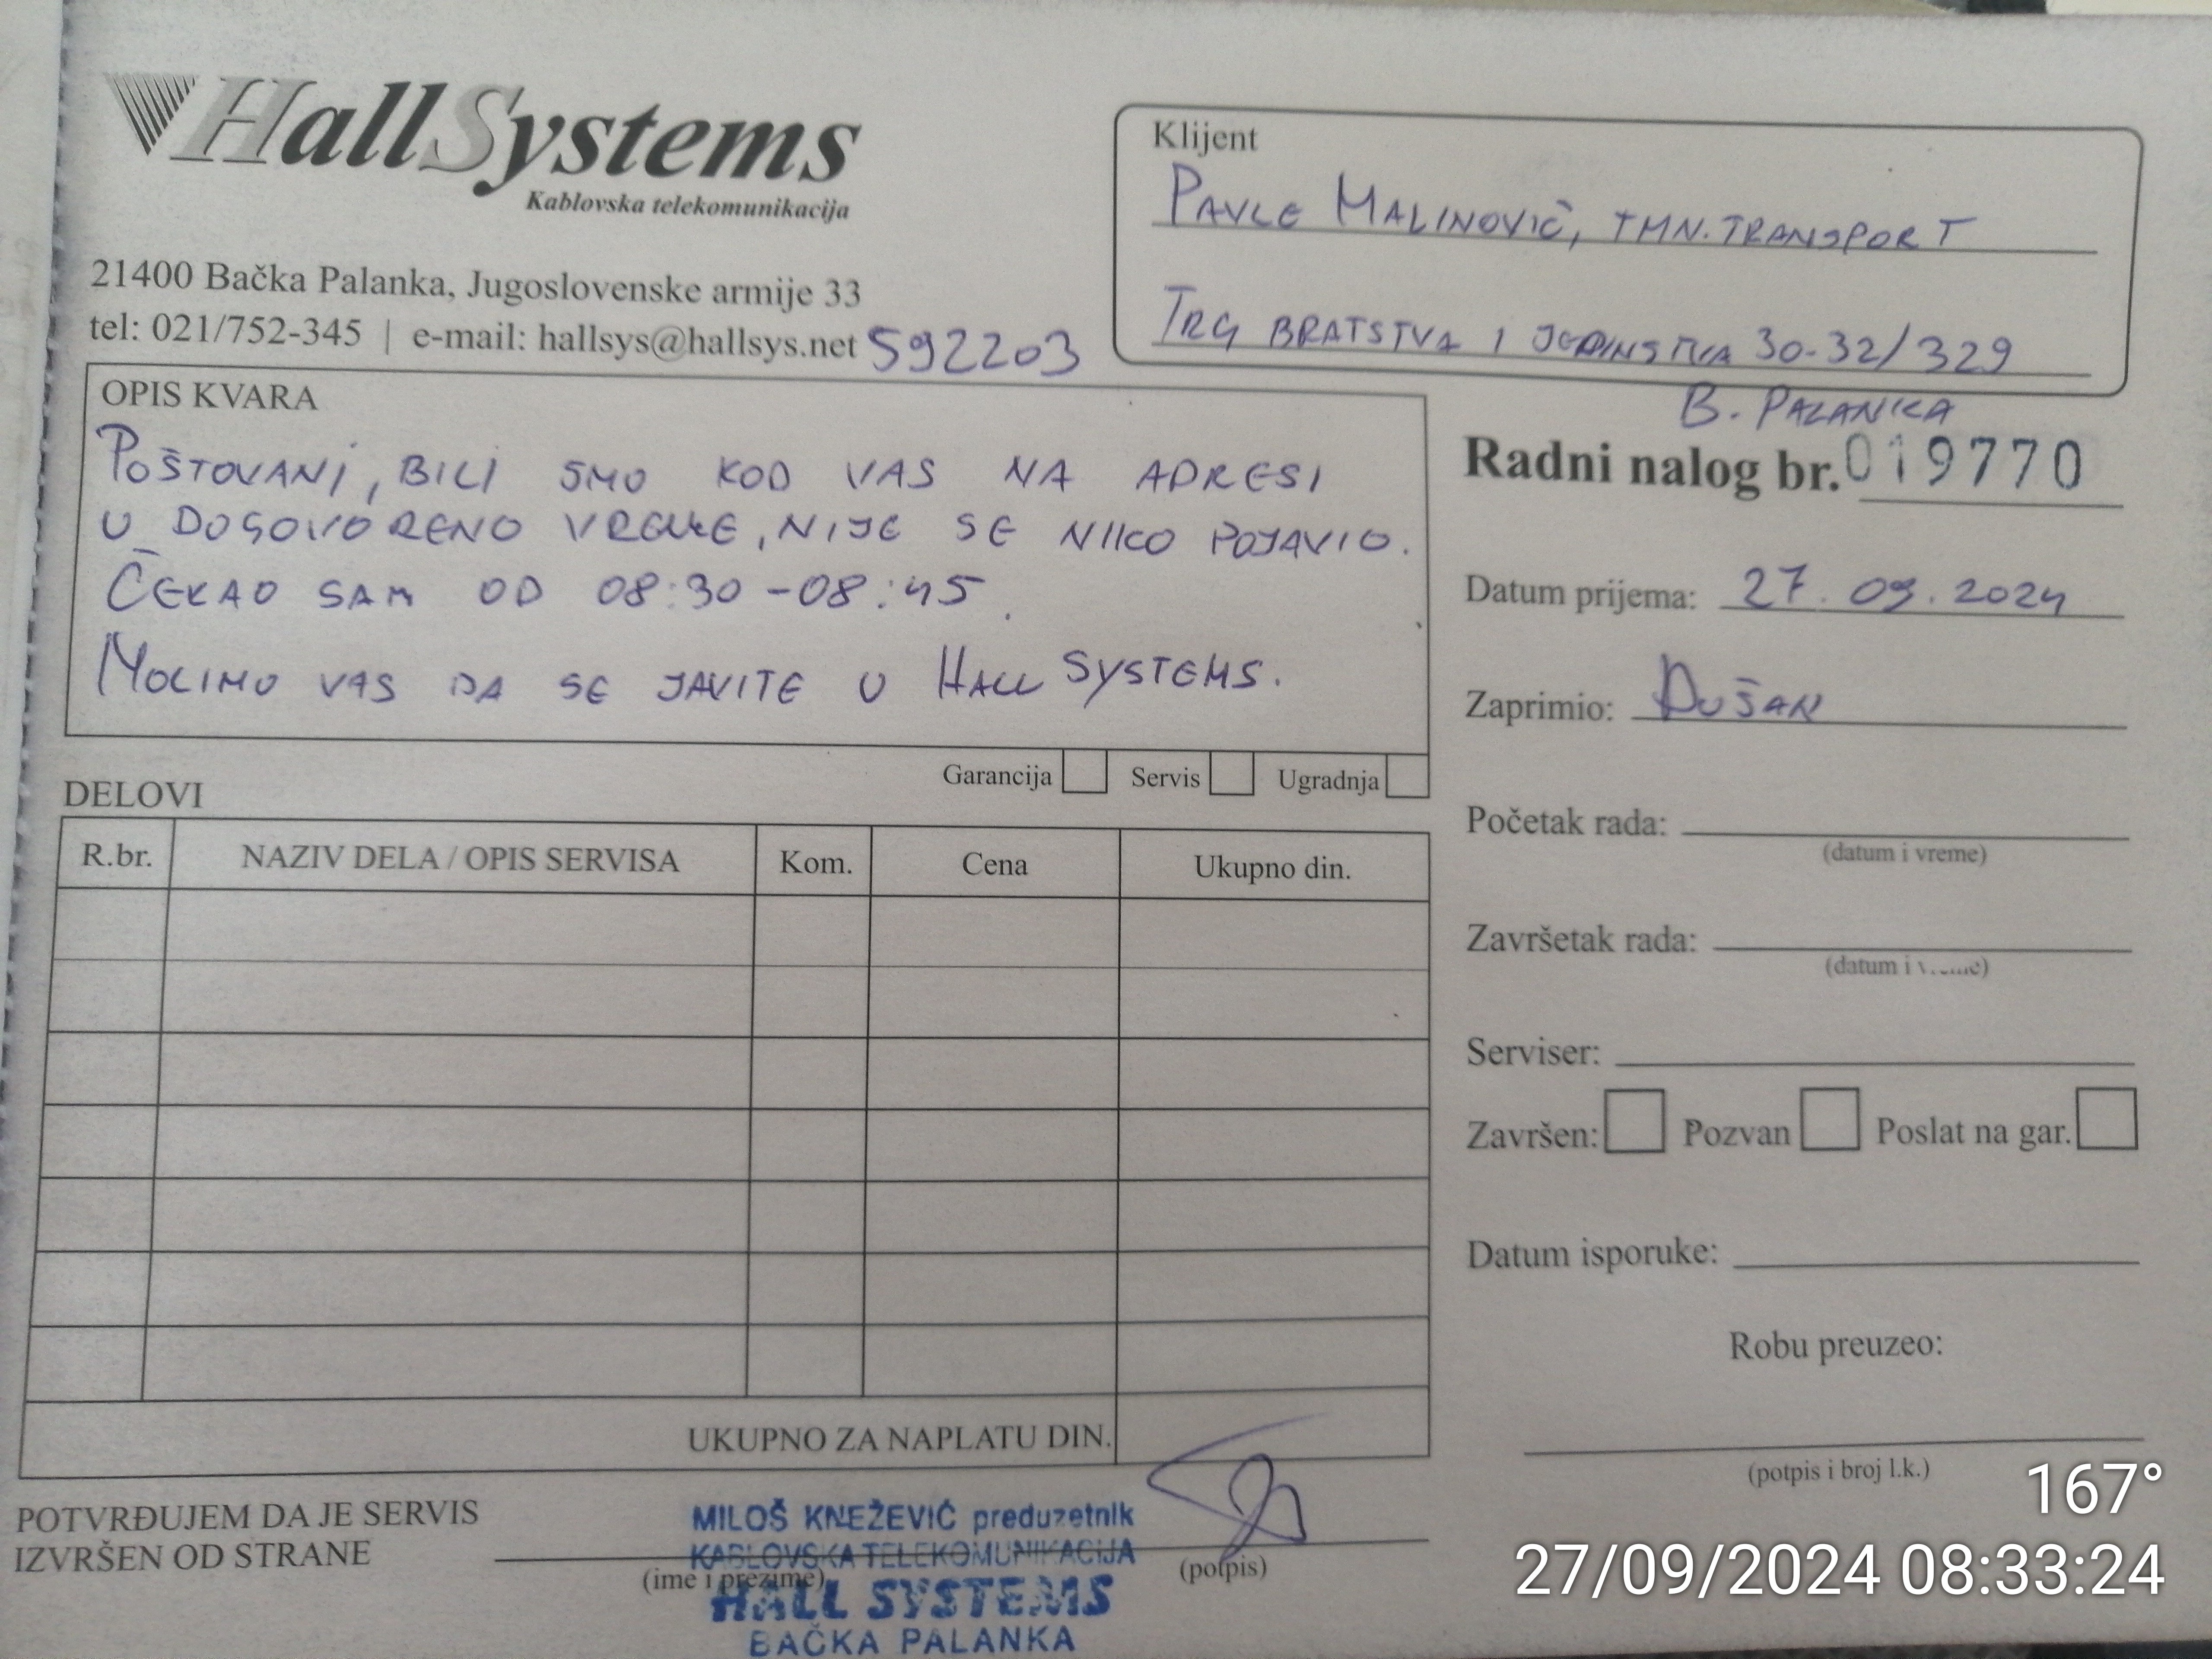 HallSystems
Kablovska telekomunikacija
21400 Bačka Palanka, Jugoslovenske armije 33
tel: 021/752-345 | e-mail: hallsys@hallsys.net 592203
Klijent
PAVLE MALINOVIČ, TMN.TRANSPORT
TRG BRATSTVA I JEDINSTVA 30-32/329
B. PALANKA
OPIS KVARA
POŠTOVANI, BILI SMO KOD VAS NA ADRESI
U DOGOVORENO VREME, NIJE SE NIKO POJAVIO.
ČEKAO SAM OD 08:30-08:45.
MOLIMO VAS DA SE JAVITE U HALL SYSTEMS.
Garancija Servis Ugradnja
Radni nalog br. 019770
Datum prijema: 27.09.2024
Zaprimio: DUŠAN
Početak rada:
(datum i vreme)
Završetak rada:
(datum i vreme)
Serviser:
Završen: Pozvan Poslat na gar.
Datum isporuke:
Robu preuzeo:
(potpis i broj l.k.)
DELOVI
R.br. NAZIV DELA / OPIS SERVISA Kom. Cena Ukupno din.
UKUPNO ZA NAPLATU DIN.
POTVRĐUJEM DA JE SERVIS
IZVRŠEN OD STRANE
(ime i prezime)
(potpis)
MILOŠ KNEŽEVIĆ preduzetnik
KABLOVSKA TELEKOMUNIKACIJA
HALL SYSTEMS
BAČKA PALANKA
167°
27/09/2024 08:33:24